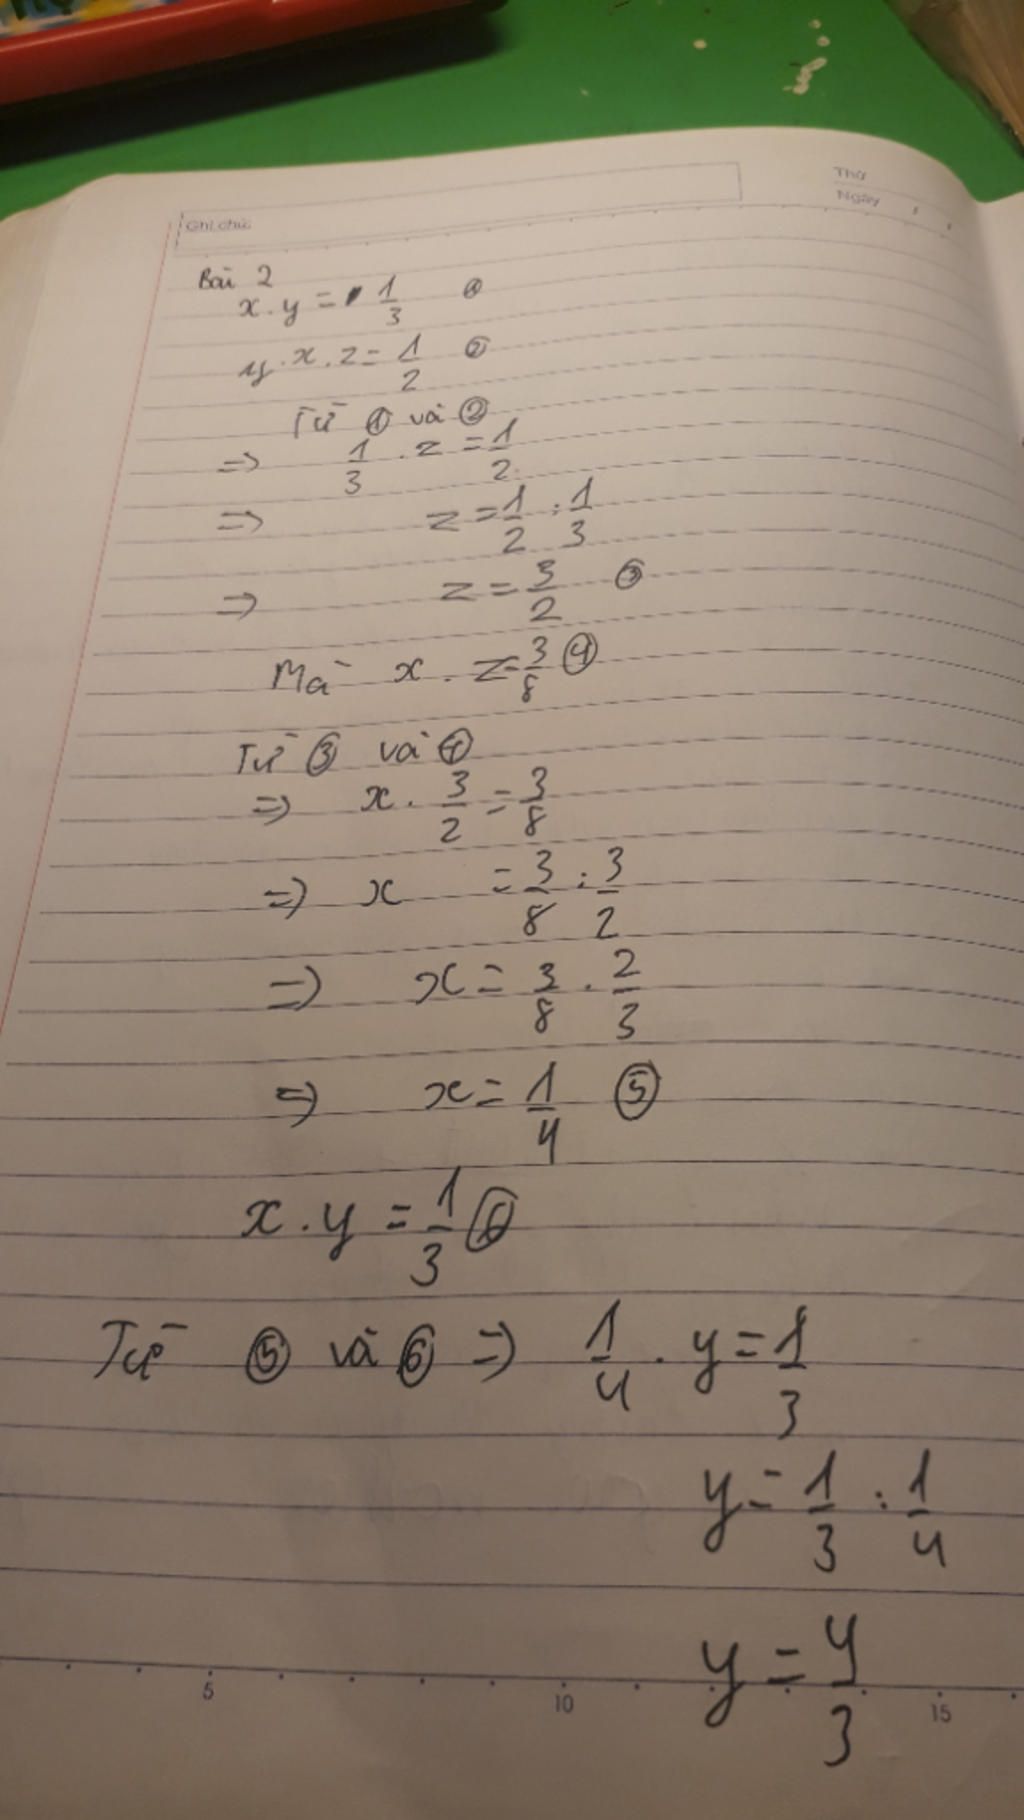 Thứ
Ngày
Ghi chú:
Bài 2
x.y = 1/3 ①
y.x.z = 1/2 ②
Từ ① và ②
=> 1/3 . z = 1/2
=> z = 1/2 : 1/3
=> z = 3/2 ③
Mà x . z = 3/8 ④
Từ ③ và ④
=> x . 3/2 = 3/8
=> x = 3/8 : 3/2
=> x = 3/8 . 2/3
=> x = 1/4 ⑤
x . y = 1/3 ⑥
Từ ⑤ và ⑥ => 1/4 . y = 1/3
y = 1/3 : 1/4
y = 4/3
5 10 15